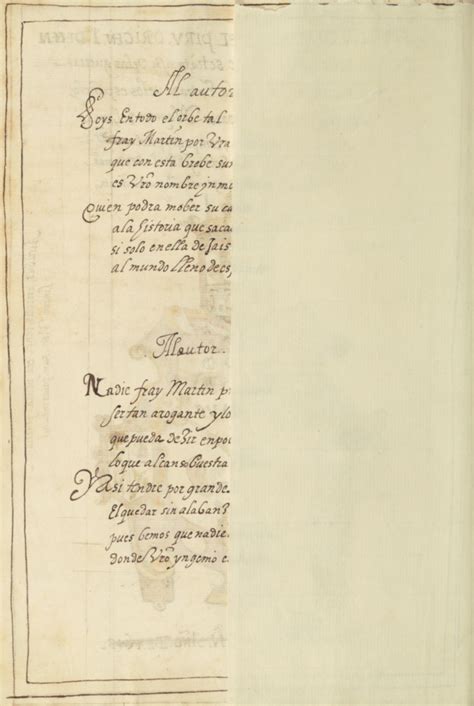 Al autor
Soys En todo el orbe tal
fray Martin por Vra
que con esta brebe sum
es Vro nombre ynm
Quien podra mober su ca
a la historia que saca
si solo en ella dejais
al mundo lleno de es
Al autor.
Nadie fray Martin p
ser tan arogante y lo
que pueda dezir en po
lo que alcanso buestra
Y asi tendre por grande
El quedar sin alaban
pues bemos que nadie
donde Vro yngenio e